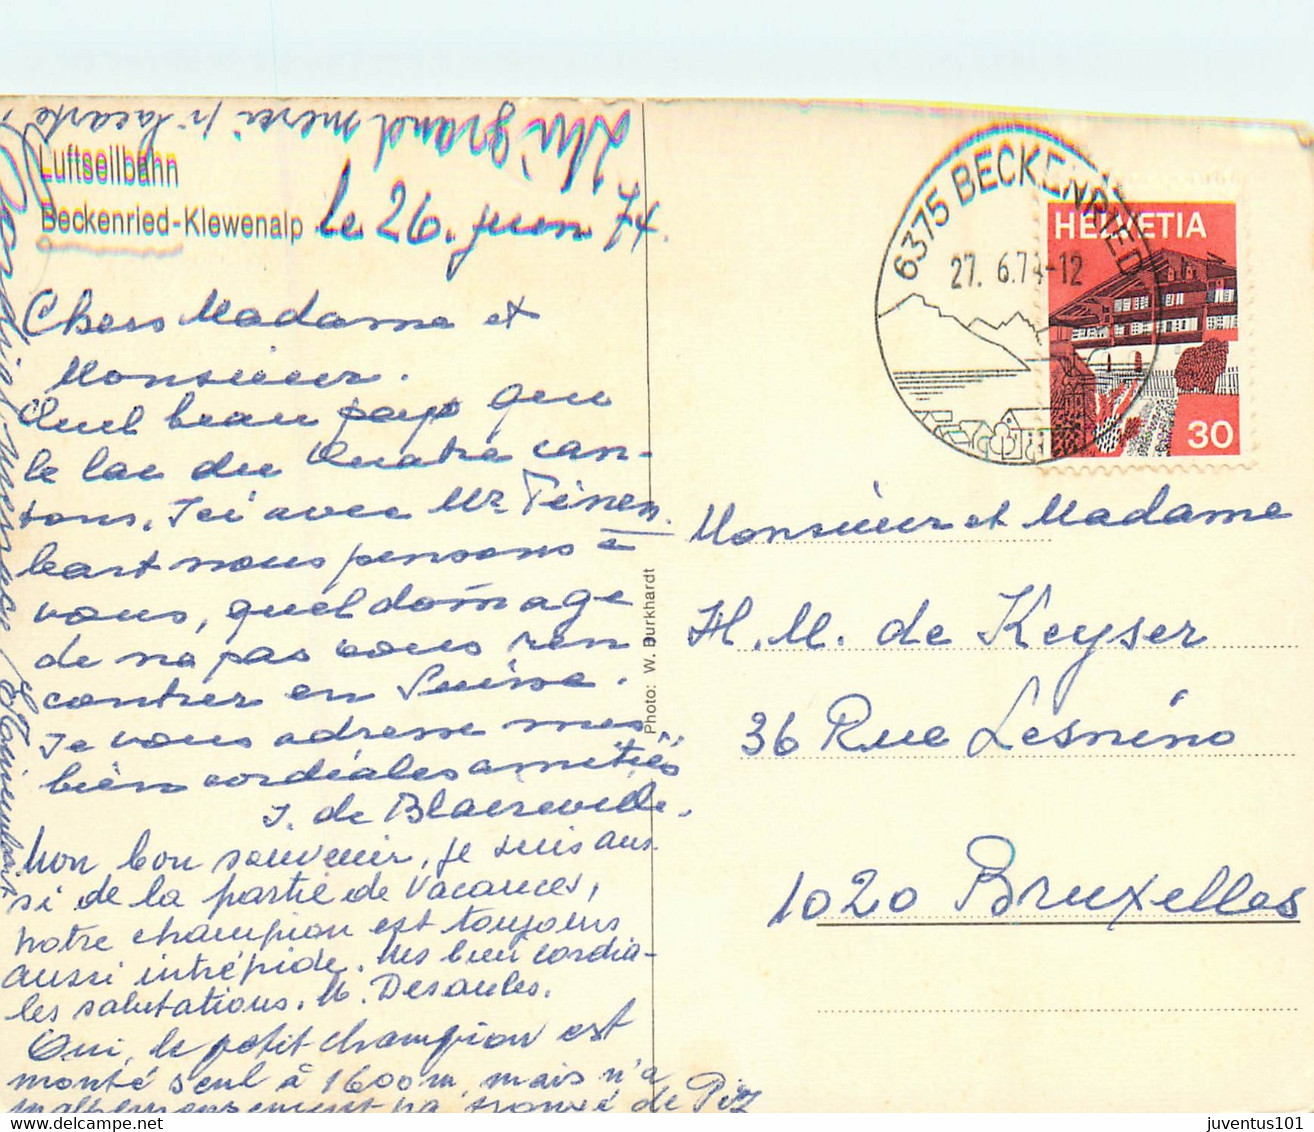 Un grand merci p. la carte
Luftseilbahn
Beckenried-Klewenalp
le 26. juin 74.
Chers Madame et
Monsieur.
Quel beau pays que
le lac du Quatre can-
tons. Ici avec Mr.
bart nous pensons à
vous, quel dommage
de ne pas vous ren
contrer en Suisse.
Je vous adresse mes
bien cordiales amitiés
J. de
Mon bon souvenir, je suis aus-
si de la partie de vacances,
notre champion est toujours
aussi intrépide. Mes bien cordia-
les salutations. M. Desaules.
Oui, le petit champion est
monté seul à 1600m, mais n'a
malheureusement pas trouvé de
Photo: W. Burkhardt
6375 BECKENRIED
27. 6.74-12
HELVETIA
30
Monsieur et Madame
H. M. de Keyser
36 Rue Lesnino
1020 Bruxelles
juventus101